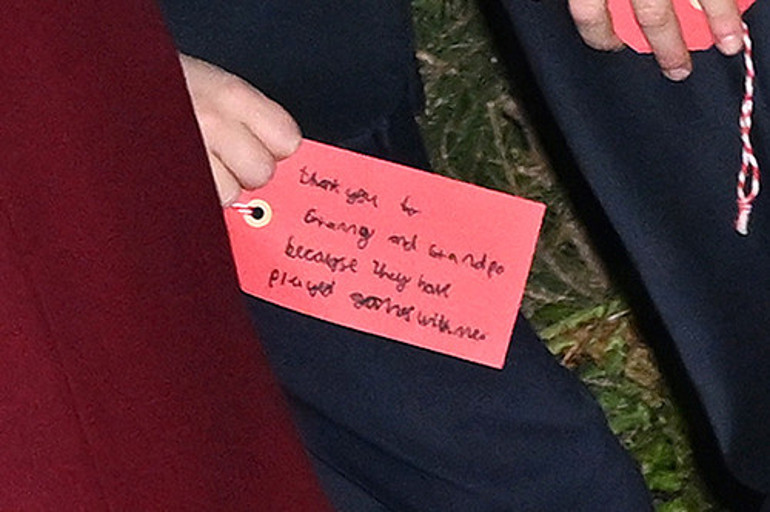 thank you to
Granny and Grandpa
because they have
played games with me.